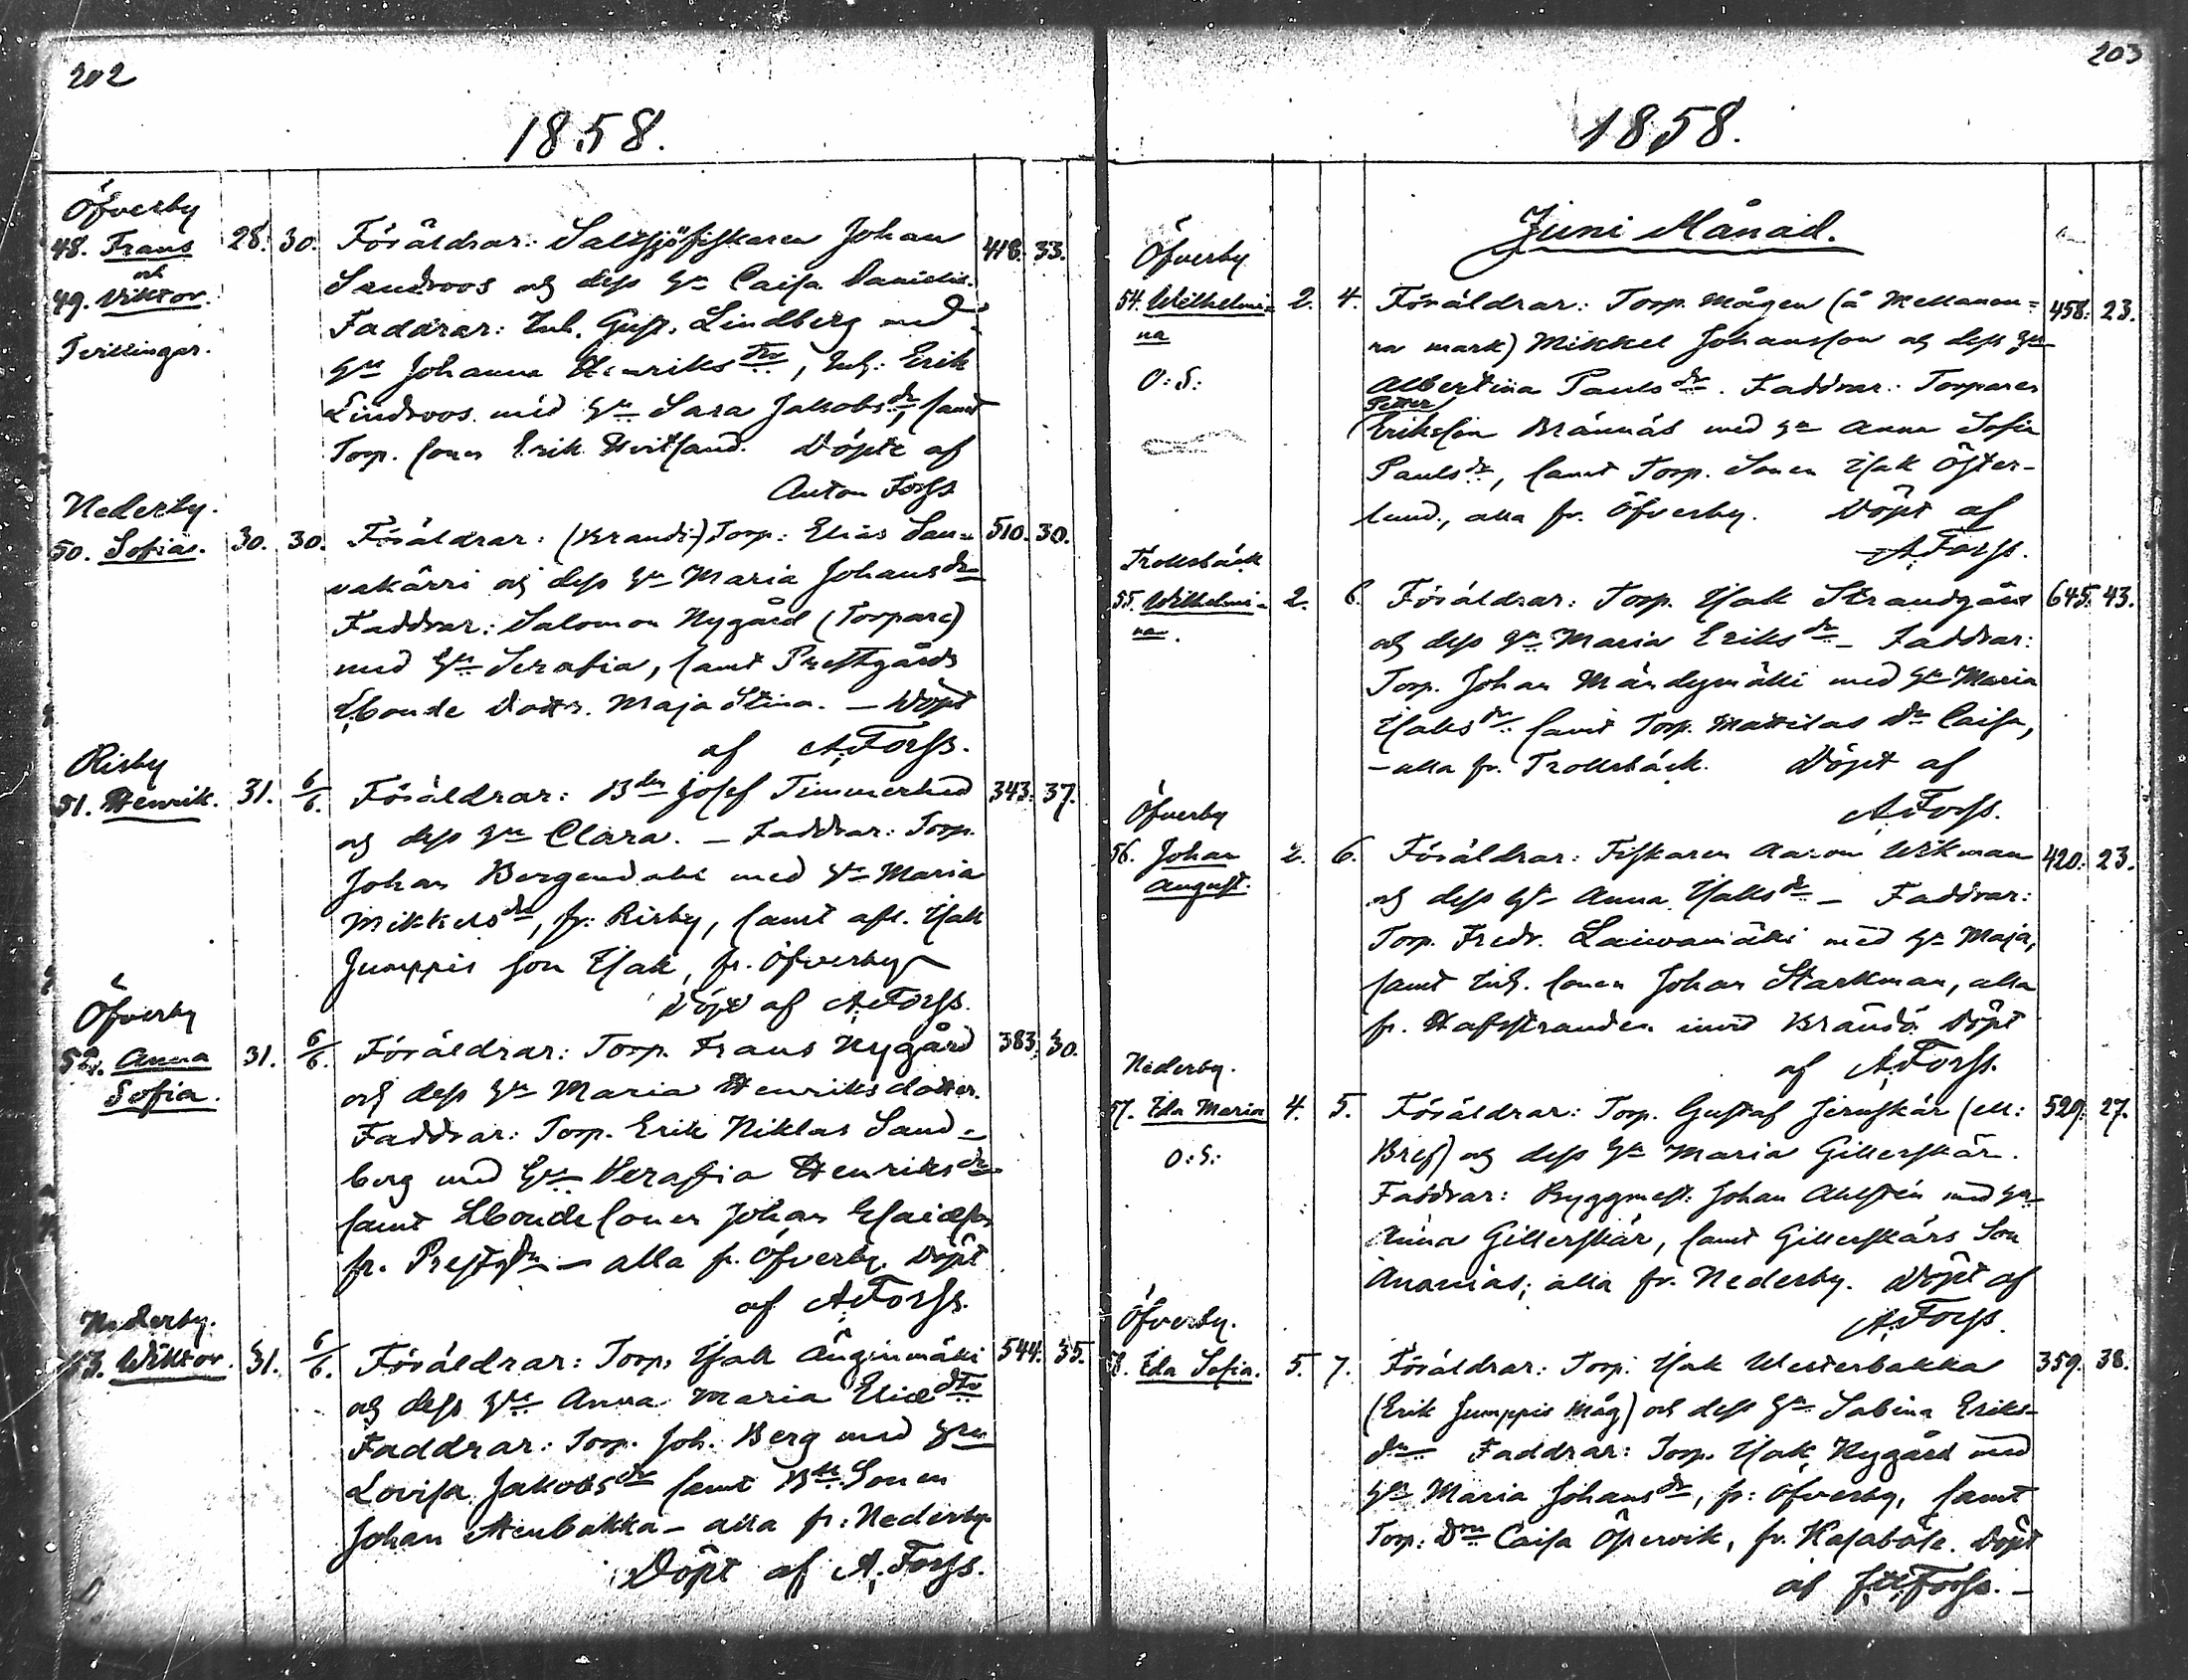 202
1858.
Öfverby
48. Frans
och
49. Viktor.
Tvillingar.
28. 30.
Föräldrar: Saltsjöfiskaren Johan
Sandroos och dess hu Caisa Danielsd.
Faddrar: Inh. Gust. Lindberg med
hu Johanna Henriksdtr, Inh: Erik
Lindroos med hu Sara Jakobsdr, samt
Torp. sonen Erik Hvitsand. Döpte af
Anton Forss
418. 33.
Nederby.
50. Sofia.
30. 30.
Föräldrar: (Brandi-) Torp: Elias San-
vakärri och dess hu Maria Johansdr
Faddrar: Salomon Nygård (Torpare)
med hu Serafia, samt Prestgårds
Lbonde Dottr. Maja Stina. — Döpt
af A. Forss.
510. 30.
Risby
51. Henrik.
31. 6/6.
Föräldrar: Bden Josef Timmerhed
och dess hu Clara. — Faddrar: Torp.
Johan Bergendahl med hu Maria
Mikkelsdr, fr: Risby, samt afl. Isak
Jumppis son Isak, fr. Öfverby
Döpt af A. Forss.
343. 37.
Öfverby
52. Anna
Sofia.
31. 6/6.
Föräldrar: Torp. Frans Nygård
och dess hu Maria Henriksdotter.
Faddrar: Torp. Erik Niklas Sand-
berg med hu Serafia Henriksdr
samt Lbondesonen Johan Esaiæson
fr. Prestgdn — alla fr. Öfverby. Döpt
af A. Forss.
383. 30.
Nederby.
53. Wiktor.
31. 6/6.
Föräldrar: Torp. Isak Änginmäki
och dess hu Anna Maria Eliædtr
Faddrar: Torp. Joh. Berg med hru
Lovisa Jakobsdr samt Bde Sonen
Johan Stenbakka — alla fr: Nederby.
Döpt af A. Forss.
544. 35.
203
1858.
Juni Månad.
Öfverby
54. Wilhelmi-
na
O: S:
2. 4.
Föräldrar: Torp. Mågen (å Mellanan-
ra mark) Mikkel Johansson och dess hu
Albertina Paulsdr. Faddrar: Torparen
Petter
Eriksson Brännäs med hu Anna Sofia
Paulsdr, samt Torp. Sonen Isak Öster-
lund, alla fr. Öfverby. Döpt af
A. Forss.
458. 23.
Trollsbäck
55. Wilhelmi-
na.
2. 6.
Föräldrar: Torp. Isak Strandgård
och dess hu Maria Eriksdr — Faddrar:
Torp. Johan Mändymäki med hu Maria
Isaksdr samt Torp. Mattilas Dr Caisa,
— alla fr. Trollsbäck. Döpt af
A. Forss.
645. 43.
Öfverby
56. Johan
August.
2. 6.
Föräldrar: Fiskaren Aaron Wikman
och dess hu Anna Isaksdr — Faddrar:
Torp. Fredr. Laiwamäki med hu Maja,
samt Inh. sonen Johan Starkman, alla
fr. Hafsstranden invid Brändö Döpt
af A. Forss.
420. 23.
Nederby.
57. Ida Maria
O: S:
4. 5.
Föräldrar: Torp. Gustaf Jernskär (ell:
Bref) och dess hu Maria Gillerskär.
Faddrar: Byggmest: Johan Ahlstén med hu
Anna Gillerskär, samt Gillerskärs Son
Ananias, alla fr. Nederby. Döpt af
A. Forss.
529. 27.
Öfverby.
58. Ida Sofia.
5. 7.
Föräldrar: Torp. Isak Westerbakka
(Erik Jumppis Måg) och dess hu Sabina Eriks-
dr Faddrar: Torp. Isak Nygård med
hu Maria Johansdr, fr: Öfverby, samt
Torp: Dtrn Caisa Öpervik, fr. Hasaböle. Döpt
af Forss. —
359. 38.